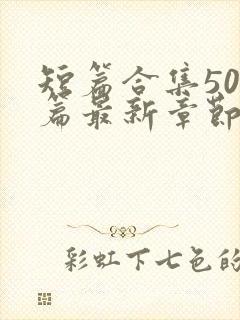 短篇合集50
篇最新章节
彩虹下七色的